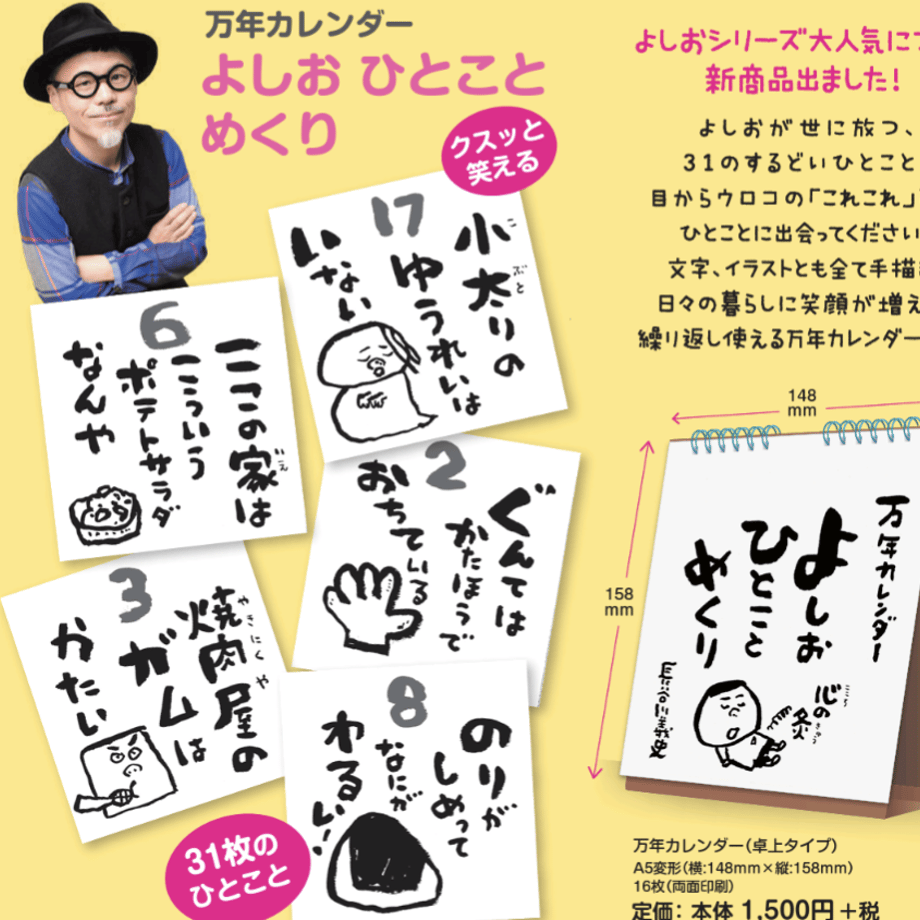 万年カレンダー
よしお ひとこと
めくり
クスッと
笑える
よしおシリーズ大人気に
新商品出ました!
よしおが世に放つ、
31のするどいひとこと
目からウロコの「これこれ」
ひとことに出会ってください
文字、イラストとも全て手描
日々の暮らしに笑顔が増え
繰り返し使える万年カレンダー
17
小太りの
こぶと
ゆうれいは
いない
6
ここの家は
いえ
こういう
ポテトサラダ
なんや
2
ぐんては
かたほうで
おちている
3
焼肉屋の
やきにくや
ガムは
かたい
8
のりが
しめって
なにが
わるい!
31枚の
ひとこと
148
mm
158
mm
万年カレンダー
よしお
ひとこと
めくり
長谷川義史
心の灸
こころ きゅう
万年カレンダー(卓上タイプ)
A5変形(横:148mm×縦:158mm)
16枚(両面印刷)
定価: 本体 1,500円+税